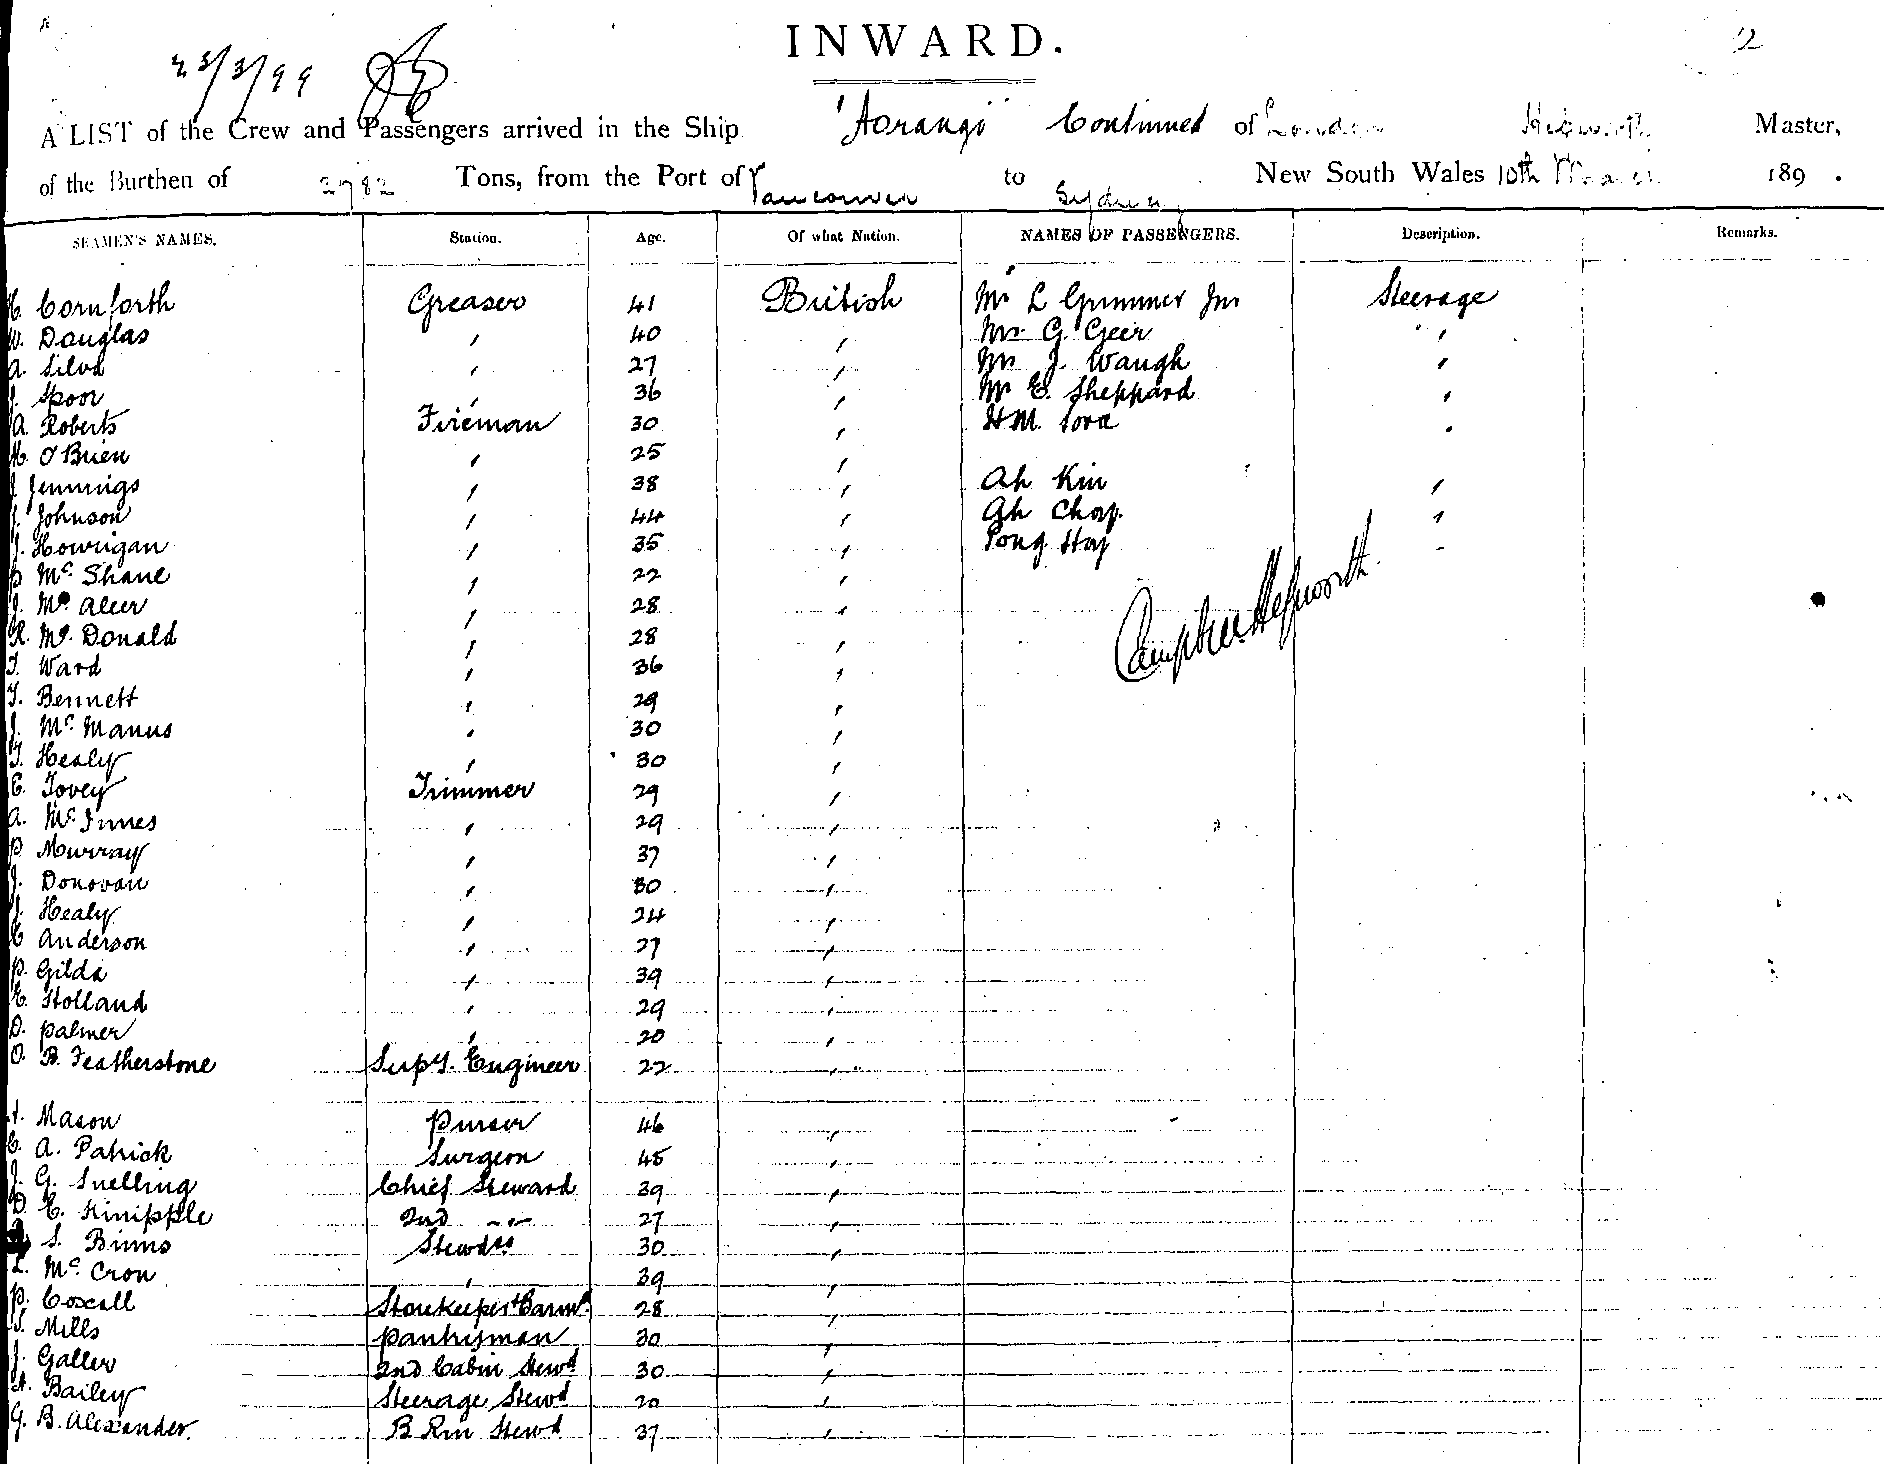 INWARD.
2
23/3/99
A LIST of the Crew and Passengers arrived in the Ship "Aorangi" Continued of London Hepworth Master,
of the Burthen of 2782 Tons, from the Port of Vancouver to Sydney New South Wales 10th March 189 .
SEAMEN'S NAMES. Station. Age. Of what Nation. NAMES OF PASSENGERS. Description. Remarks.
Cornforth Greaser 41 British Mr L Grimmer Jnr Steerage
W. Douglas " 40 " Mr G. Geer "
A. Silva " 27 " Mr J. Waugh "
J. Spoor " 36 " Mr E. Sheppard "
A. Roberts Fireman 30 " H.M.
O'Brien " 25 "
J. Jennings " 38 " Ah Kin "
J. Johnson " 44 " Ah Chap. "
J. Hourigan " 35 "
Mc. Shane " 22 "
J. Mc. Aleer " 28 "
R. Mc. Donald " 28 "
T. Ward " 36 "
T. Bennett " 29 "
J. Mc. Manus " 30 "
T. Healy " 30 "
E. Tovey Trimmer 29 "
A. Mc. Innes " 29 "
P. Murray " 37 "
J. Donovan " 30 "
J. Healy " 24 "
Anderson " 27 "
P. Gilda " 39 "
Holland " 29 "
D. Palmer " 20 "
O. B. Featherstone Supy. Engineer 22 "
Mason Purser 46 "
C. A. Patrick Surgeon 45 "
J. G. Snelling Chief Steward 39 "
D. C. Kinipple 2nd " 27 "
S. Binns Stewdss 30 "
L. Mc. Cron " 39 "
P. Coxall Storekeeper & Barmn 28 "
Mills Pantryman 30 "
J. Galler 2nd Cabin Stewd 30 "
Bailey Steerage Stewd 20 "
G. B. Alexander. B Rm Stewd 37 "
Campbell Hepworth.